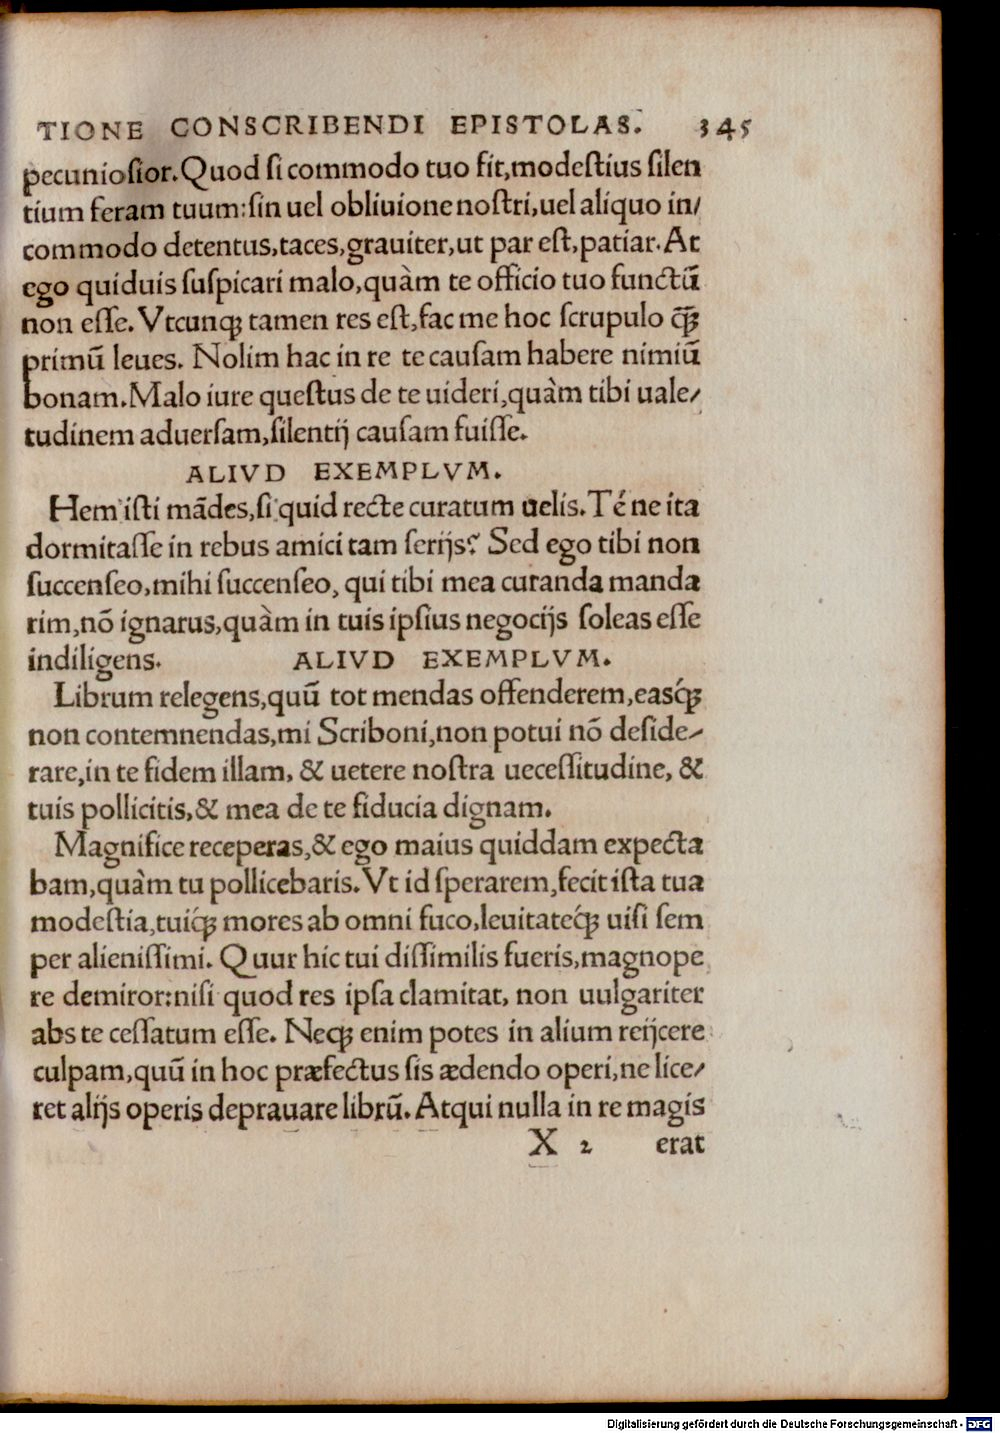 TIONE CONSCRIBENDI EPISTOLAS. 345
pecuniosior. Quod si commodo tuo fit, modestius silen
tium feram tuum: sin uel obliuione nostri, uel aliquo in/
commodo detentus, taces, grauiter, ut par est, patiar. At
ego quiduis suspicari malo, quàm te officio tuo functū
non esse. Vtcunqꝫ tamen res est, fac me hoc scrupulo q̄ꝫ
primū leues. Nolim hac in re te causam habere nimiū
bonam. Malo iure questus de te uideri, quàm tibi uale/
tudinem aduersam, silentij causam fuisse.
ALIVD EXEMPLVM.
Hem isti mādes, si quid recte curatum uelis. Té ne ita
dormitasse in rebus amici tam serijs? Sed ego tibi non
succenseo, mihi succenseo, qui tibi mea curanda manda
rim, nō ignarus, quàm in tuis ipsius negocijs soleas esse
indiligens. ALIVD EXEMPLVM.
Librum relegens, quū tot mendas offenderem, easq́ꝫ
non contemnendas, mi Scriboni, non potui nō deside/
rare, in te fidem illam, & uetere nostra uecessitudine, &
tuis pollicitis, & mea de te fiducia dignam.
Magnifice receperas, & ego maius quiddam expecta
bam, quàm tu pollicebaris. Vt id sperarem, fecit ista tua
modestia, tuiq́ꝫ mores ab omni fuco, leuitateq́ꝫ uisi sem
per alienissimi. Quur hic tui dissimilis fueris, magnope
re demiror: nisi quod res ipsa clamitat, non uulgariter
abs te cessatum esse. Neqꝫ enim potes in alium reijcere
culpam, quū in hoc præfectus sis ædendo operi, ne lice/
ret alijs operis deprauare librū. Atqui nulla in re magis
X 2 erat
Digitalisierung gefördert durch die Deutsche Forschungsgemeinschaft - DFG